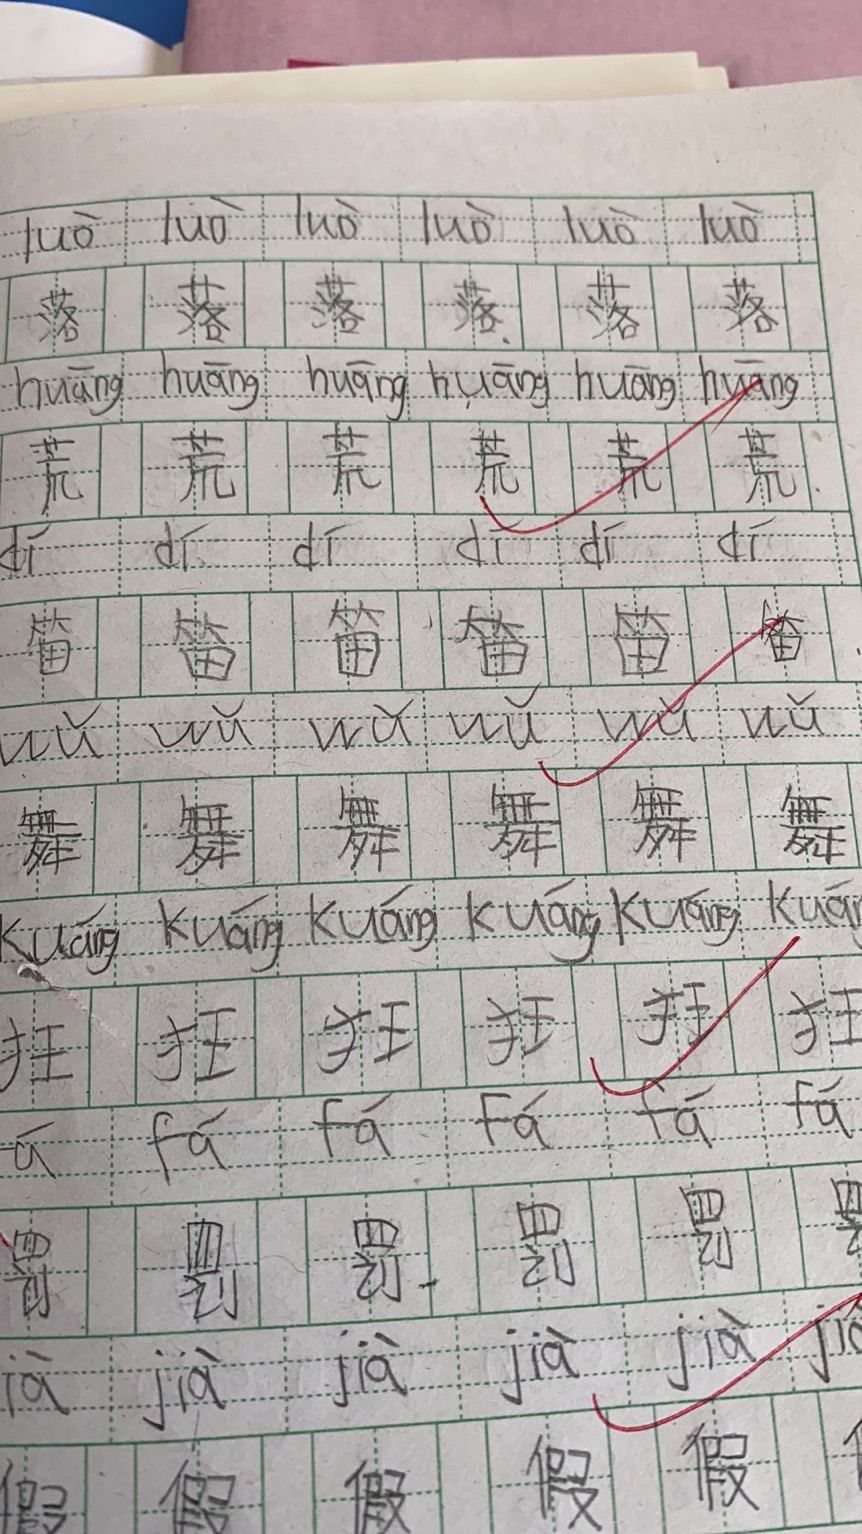 luò luò luò luò luò luò
落 落 落 落 落 落
huāng huāng huāng huāng huāng huāng
荒 荒 荒 荒 荒 荒
dí dí dí dí dí dí
笛 笛 笛 笛 笛 笛
wǔ wǔ wǔ wǔ wǔ wǔ
舞 舞 舞 舞 舞 舞
kuáng kuáng kuáng kuáng kuáng kuán
狂 狂 狂 狂 狂 狂
á fá fá fá fá fá
罚 罚 罚 罚 罚 罚
ià jià jià jià jià jià
假 假 假 假 假